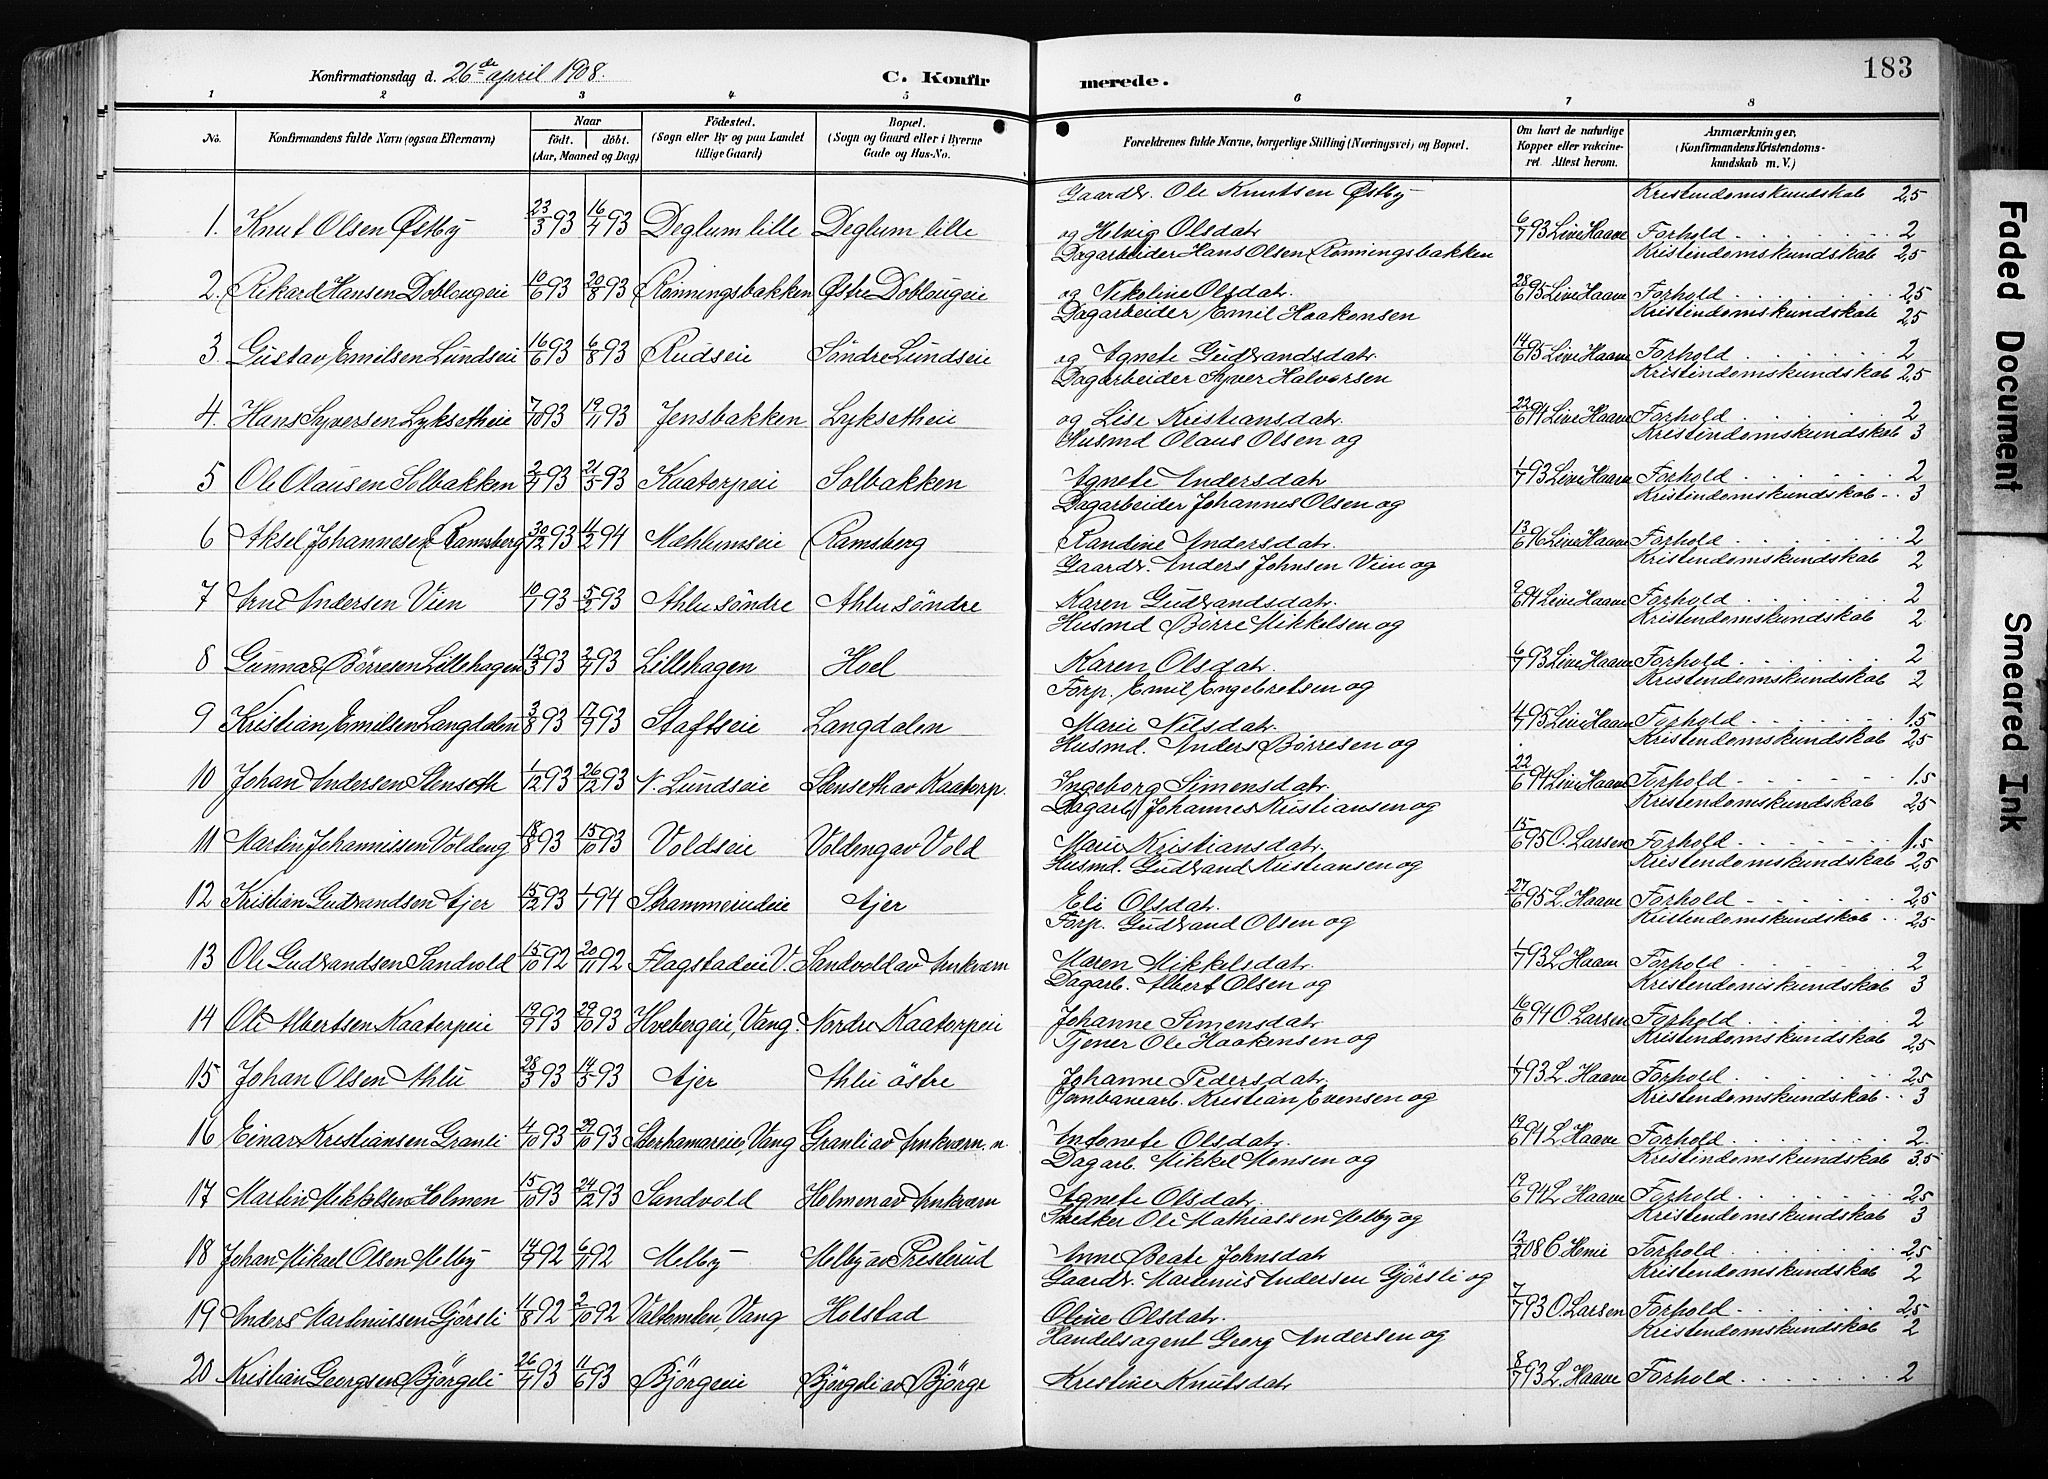 Konfirmationsdag d. 26de april 1908.
C. Konfirmerede.
183
1 2 3 4 5 6 7 8
No.
Konfirmandens fulde Navn (ogsaa Efternavn)
Naar
født. døbt.
(Aar, Maaned og Dag)
Fødested.
(Sogn eller By og paa Landet tillige Gaard)
Bopæl.
(Sogn og Gaard eller i Byerne Gade og Hus-No.
Forældrenes fulde Navne, borgerlige Stilling (Næringsvei) og Bopæl.
Om havt de naturlige Kopper eller vaccineret. Attest herom.
Anmærkninger,
(Konfirmandens Kristendomskundskab m. V.)
Gaardbr. Ole Knutsen Østby Kristendomskundskab 2,5
1. Knut Olsen Østby 23/3 93 16/4 93 Deglum lille Deglum lille og Helvig Olsdatr 6/7 93 Live Haave Forhold 2
Dagarbeider Hans Olsen Rønningsbakken Kristendomskundskab 2,5
2. Rikard Hansen Doblougeie 10/6 93 20/8 93 Rønningsbakken Østre Doblougeie og Nikoline Olsdatr. 28/6 95 Live Haave Forhold 2,5
Dagarbeider Emil Haakensen Kristendomskundskab 2,5
3. Gustav Emilsen Lundseie 16/6 93 6/8 93 Rudseie Søndre Lundseie og Agnete Gudbrandsdatr. 14/6 95 Live Haave Forhold 2
Dagarbeider Syver Halvorsen Kristendomskundskab 2,5
4. Hans Syversen Lyksetheie 7/10 93 19/11 93 Jensbakken Lyksetheie og Lise Kristiansdatr. 22/6 94 Live Haave Forhold 2
Husmd Olaus Olsen og Kristendomskundskab 3
5 Ole Olausen Solbakken 2/4 93 21/5 93 Kaatorpeie Solbakken Agnete Andersdatr 1/7 93 Live Haave Forhold 2
Dagarbeider Johannes Olsen og Kristendomskundskab 3
6 Aksel Johannesen Ramsberg 30/12 93 11/2 94 Mæhlumseie Ramsberg Randine Andersdatr. 13/6 96 Live Haave Forhold 2
Gaardbr. Anders Johnsen Vien og Kristendomskundskab 2
7 Arne Andersen Vien 10/1 93 5/3 93 Ahlu søndre Ahlu søndre Karen Gudbrandsdatr. 9/6 94 Live Haave Forhold 2
Husmd Børre Mikkelsen og Kristendomskundskab 2
8 Gunnar Børresen Lillehagen 12/3 93 2/4 93 Lillehagen Hoel Karen Olsdatr. 6/7 93 Live Haave Forhold 2
Forp. Emil Engebretsen og Kristendomskundskab 2
9 Kristian Emilsen Langdalen 3/8 93 17/9 93 Staftseie Langdalen Marie Nilsdatr. 4/7 95 Live Haave Forhold 1.5
Husmd. Anders Børresen og Kristendomskundskab 2,5
10 Johan Andersen Stenseth 1/12 93 26/12 93 N. Lundseie Stenseth av Kaatorp. Ingeborg Simensdatr. 22/6 94 Live Haave Forhold 1.5
Dagarb. Johannes Kristiansen og Kristendomskundskab 2,5
11 Martin Johannissen Voldeng 18/8 93 15/10 93 Voldseie Voldeng av Vold Marie Kristiansdatr. 15/6 95 O. Larsen Forhold 1.5
Husmd. Gudbrand Kristiansen og Kristendomskundskab 2,5
12 Kristian Gudbrandsen Ajer 15/12 93 1/1 94 Strammerudeie Ajer Eli Olsdatr. 27/6 95 L. Haave Forhold 2,5
Forp. Gudbrand Olsen og Kristendomskundskab 2,5
13 Ole Gudbrandsen Sandvold 15/10 92 20/11 92 Flagstadeie V. Sandvold av Ankværn Maren Mikkelsdatr. 1/7 93 L. Haave Forhold 2
Dagarb. Albert Olsen og Kristendomskundskab 3
14 Ole Albertsen Kaatorpeie 19/9 93 29/10 93 Hvebergeie, Vang. Nordre Kaatorpeie Johanne Simensdatr 16/6 94 O Larsen Forhold 2
Tjener Ole Haakensen og Kristendomskundskab 2,5
15 Johan Olsen Ahlu 28/3 93 14/5 93 Ajer Ahlu østre Johanne Pedersdatr. 1/7 93 L. Haave Forhold 2,5
Jernbanearb. Kristian Evensen og Kristendomskundskab 3
16 Einar Kristiansen Granli 4/10 93 29/10 93 Storhamareie, Vang Granli av Ankværn. n. Antonete Olsdatr. 19/6 94 L. Haave Forhold 2.
Dagarb. Mikkel Monsen og Kristendomskundskab 3.5
17 Martin Mikkelsen Holmen 15/10 93 24/12 93 Sandvold Holmen av Ankværn Agnete Olsdatr. 19/6 94 L. Haave Forhold 2,5
Snedker Ole Mathiassen Melby og Kristendomskundskab 3
18 Johan Mikael Olsen Melby 14/9 92 6/11 92 Melby Melby av Presterud Anne Beate Johnsdatr 12/2 08 C. Hemie Forhold 2,5
Gaardbr. Martinus Andersen Gjørsli og Kristendomskundskab 2
19 Anders Martinussen Gjørsli 11/8 92 2/10 92 Valtomten, Vang Holstad Oline Olsdatr. 7/7 93 O. Larsen Forhold 2,5
Handelsagent Georg Andersen og Kristendomskundskab 2
20 Kristian Georgsen Bjørgeli 26/4 93 11/6 93 Bjørgeie Bjørgeli av Bjørge Kristine Knutsdatr 8/7 93 L. Haave Forhold 2
Faded Document
Smeared Ink